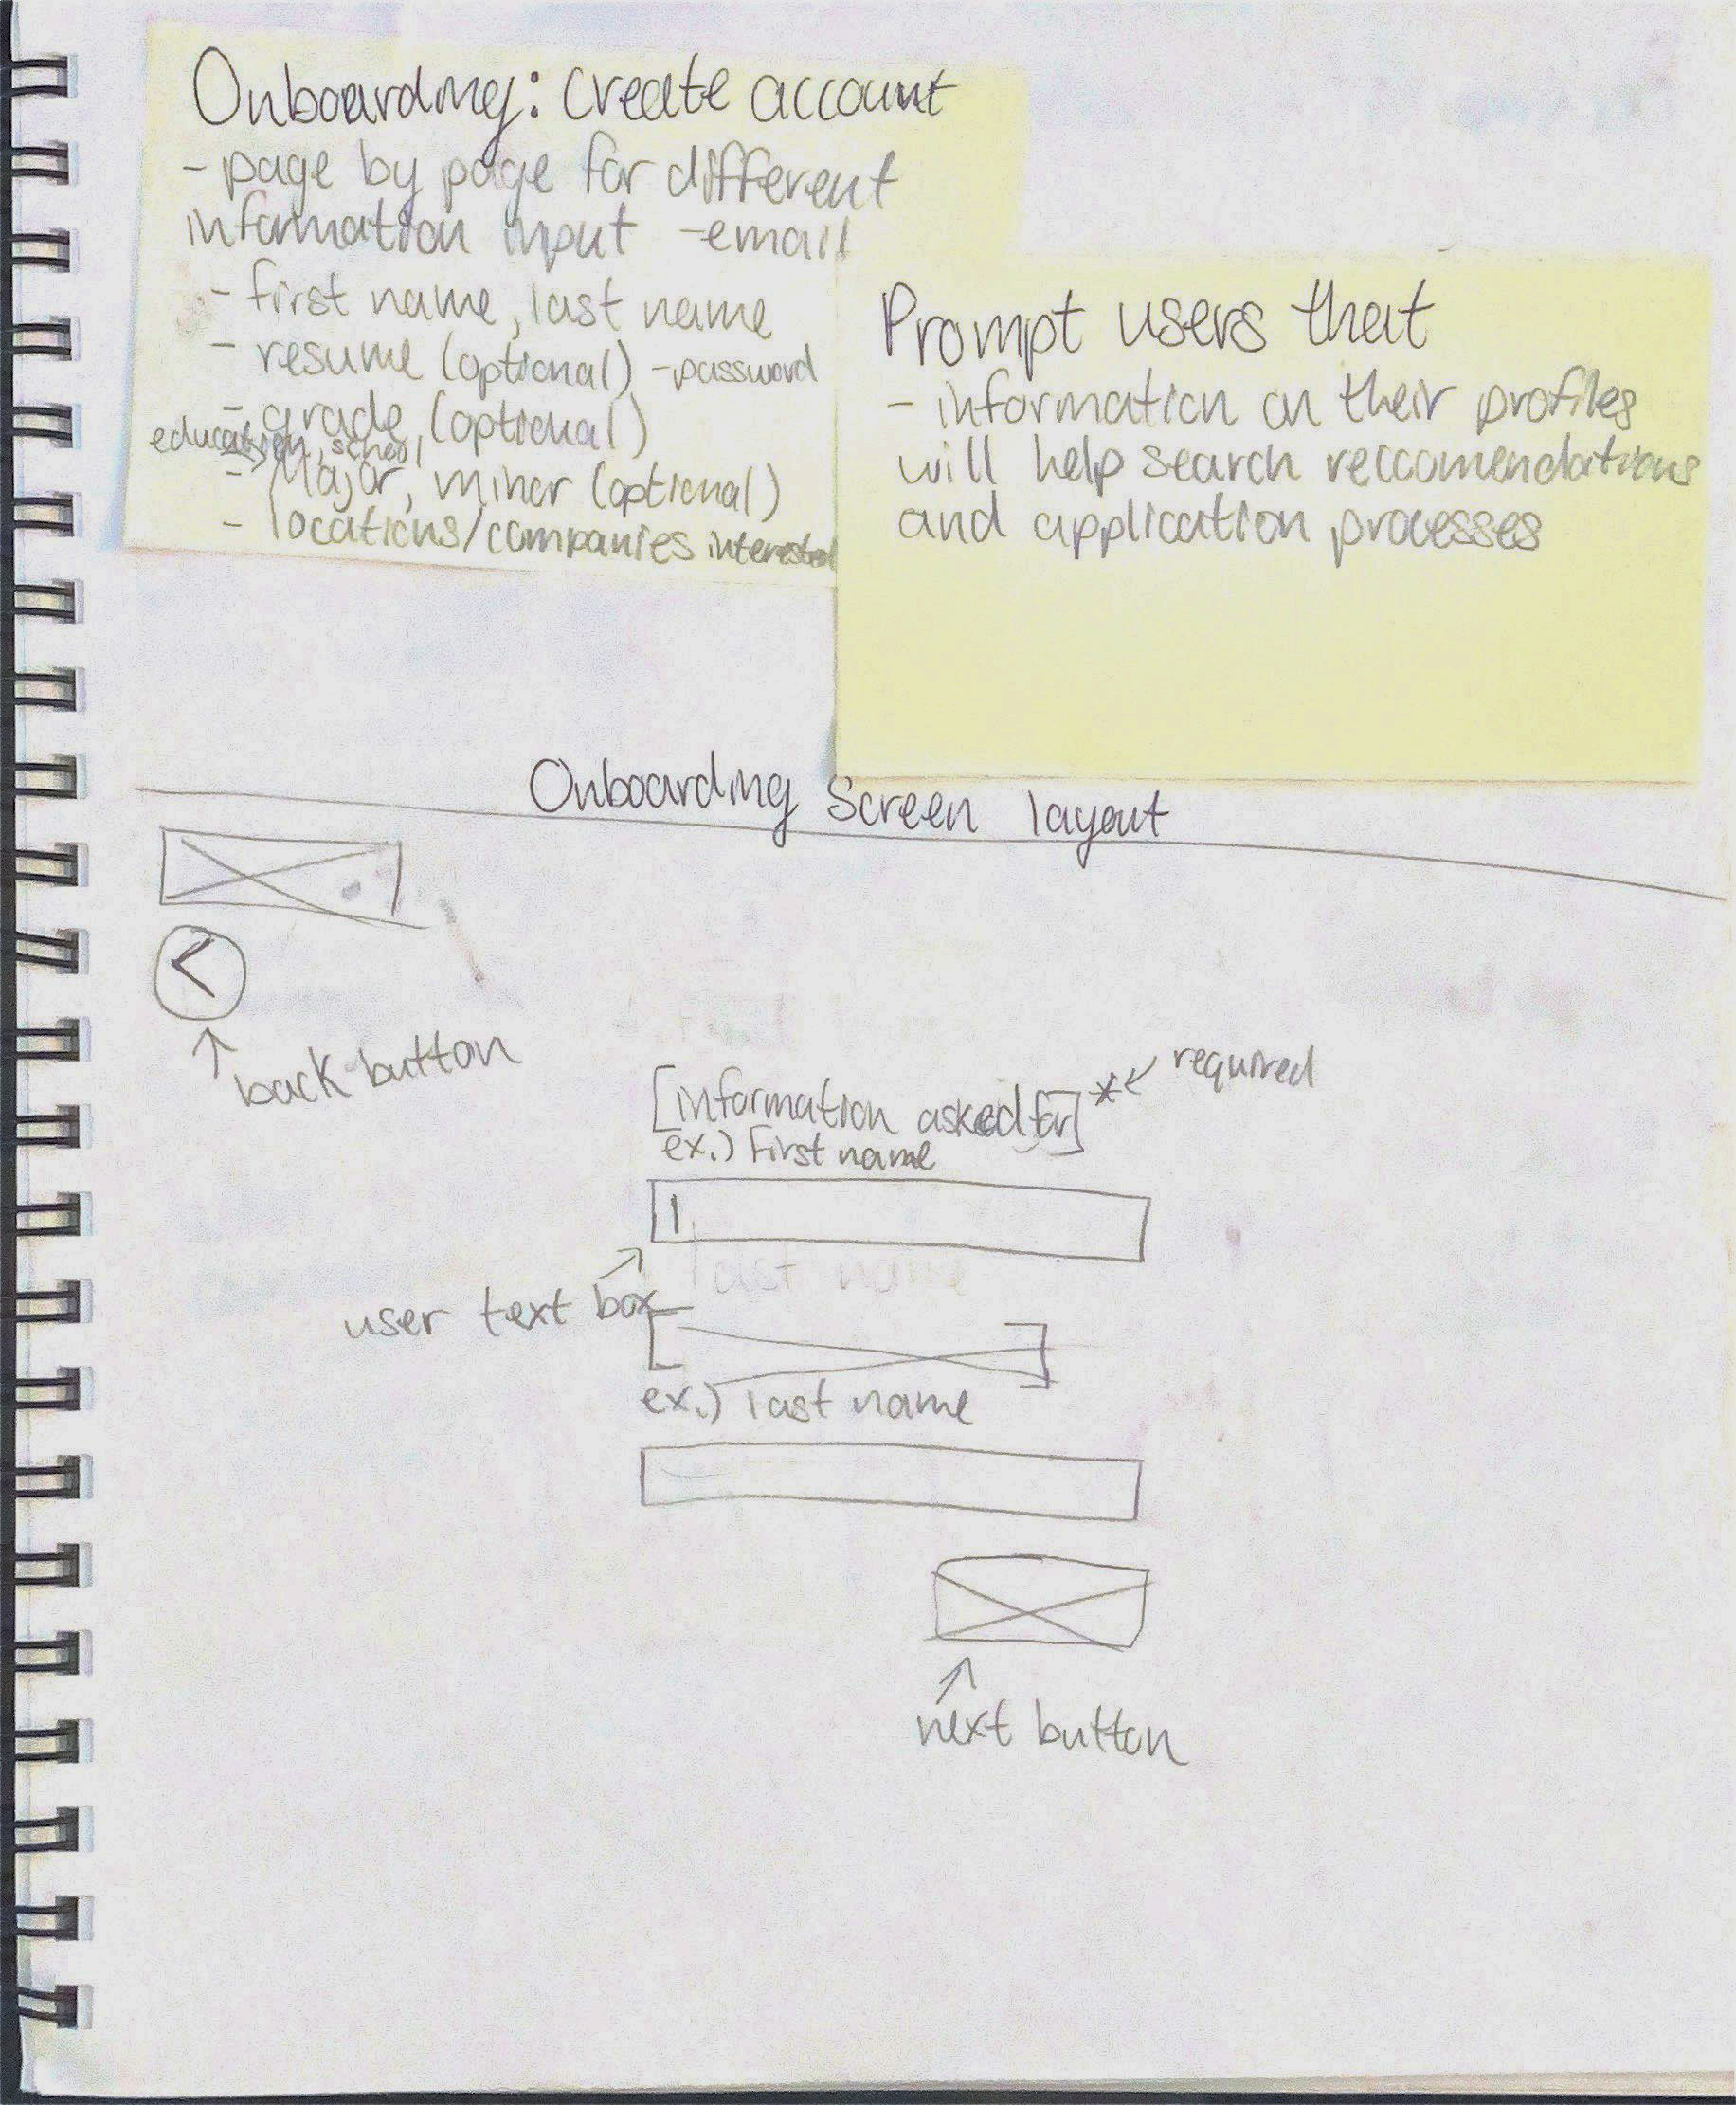 Onboarding: Create account
- page by page for different
information input - email
- first name, last name
- resume (optional) - password
- grade (optional)
education, school,
- Major, minor (optional)
- locations/companies interested
Prompt users that
- information on their profiles
will help search reccomendations
and application processes
Onboarding Screen layout
<
back button
[information asked for] *
required
ex.) First name
last name
user text box
ex.) last name
next button